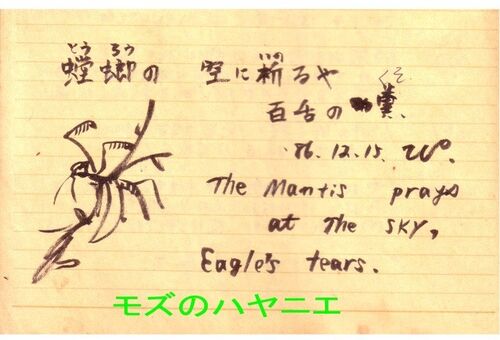 とう ろう いの
螳螂の 空に祈るや
くそ
百舌の 糞.
'86.12.15.
The Mantis prays
at the sky,
Eagle's tears.
モズのハヤニエ